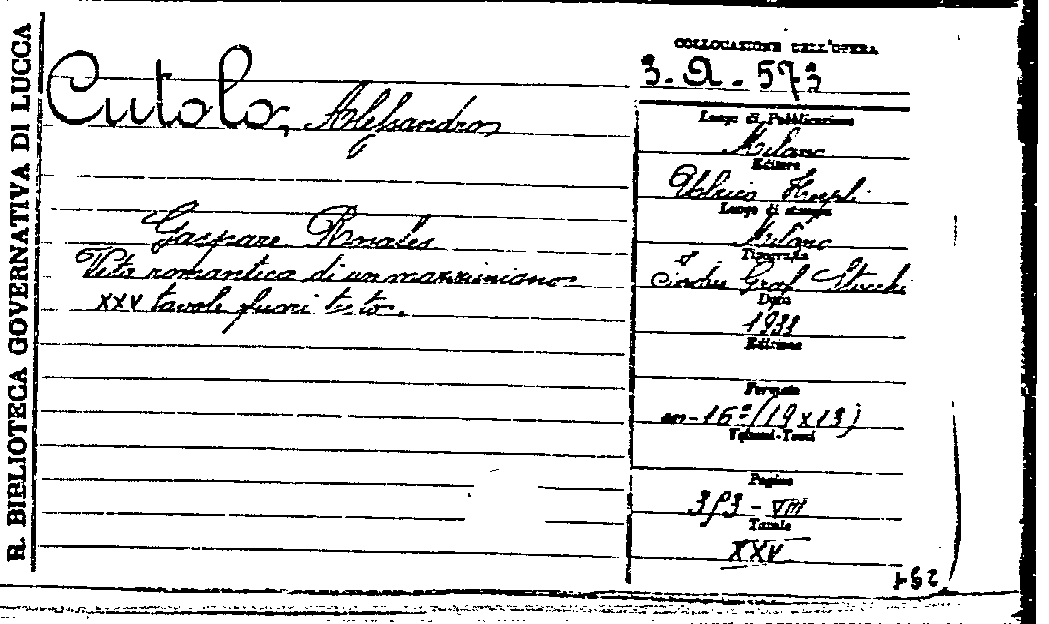 R. BIBLIOTECA GOVERNATIVA DI LUCCA
Cutolo, Alessandro
Gaspare Rosales
Vita romantica di un mazziniano
XXV tavole fuori testo.
COLLOCAZIONE DELL'OPERA
3. A. 573
Luogo di Pubblicazione
Milano
Editore
Ulrico Hoepli
Luogo di stampa
Milano
Tipografia
Graf. Stucchi
Data
Edizione
Formato
in-16º (19 x 13)
Volumi-Tomi
Pagine
VIII
Tavole
XXV